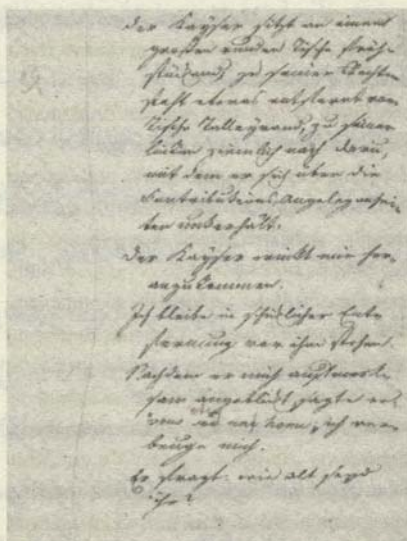 Der Kayser sitzt an einem
großen runden Tische früh-
stückend, zu seiner Rechten
steht etwas entfernt vom
Tische Talleyrand, zu seiner
linken ziemlich nach Daru,
mit dem er sich über die
Contributions Angelegenhei-
ten unterhält.
Der Kayser winkt mir her-
anzukommen.
Ich bleibe in schicklicher Ent-
fernung vor ihm stehen.
Nachdem er mich aufmerk-
sam angeblickt, sagte er:
vous êtes un homme, ich ver-
beuge mich.
Er fragt: wie alt seyd
ihr?